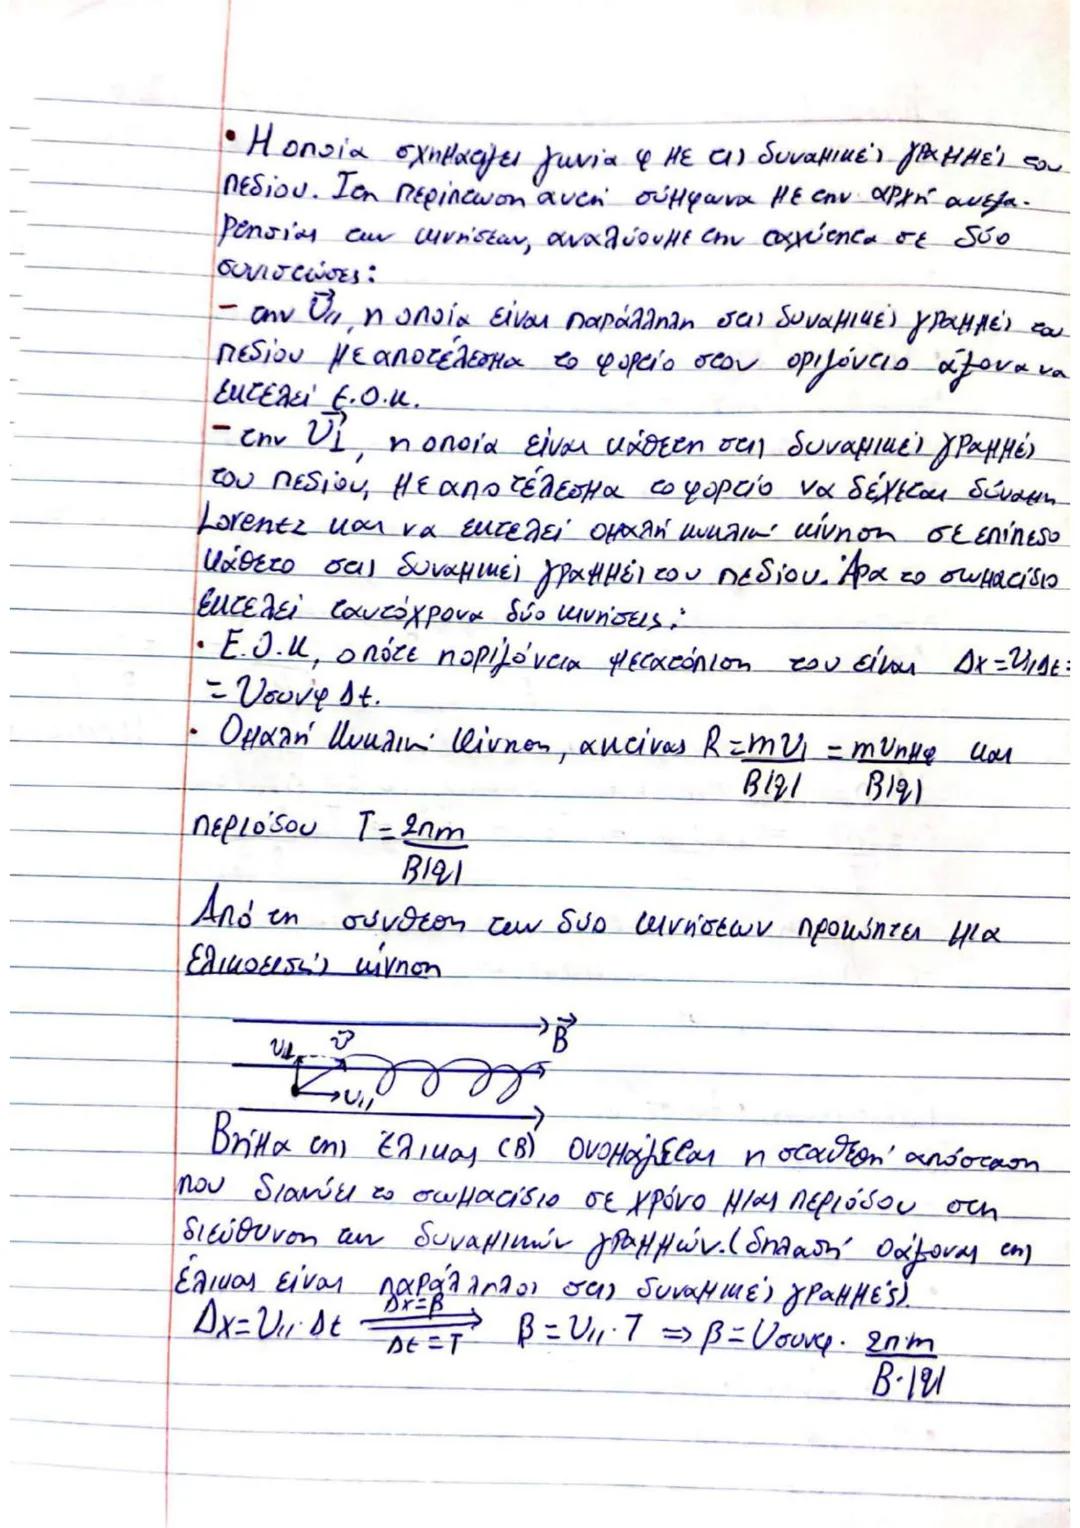 • Η οποία σχηματίζει γωνία φ με τις δυναμικές γραμμές του
πεδίου. Στη περίπτωση αυτή σύμφωνα με την αρχή ανεξα-
ρτησίας των κινήσεων, αναλύουμε την ταχύτητα σε δύο
συνιστώσες:
- την υ⃗//, η οποία είναι παράλληλη στις δυναμικές γραμμές του
πεδίου με αποτέλεσμα το φορτίο στον οριζόντιο άξονα να
εκτελεί Ε.Ο.Κ.
- την υ⃗⊥, η οποία είναι κάθετη στις δυναμικές γραμμές
του πεδίου, με αποτέλεσμα το φορτίο να δέχεται δύναμη
Lorentz και να εκτελεί ομαλή κυκλική κίνηση σε επίπεδο
κάθετο στις δυναμικές γραμμές του πεδίου. Άρα το σωματίδιο
εκτελεί ταυτόχρονα δύο κινήσεις:
• Ε.Ο.Κ, οπότε η οριζόντια μετατόπιση του είναι Δx=υ//Δt=
=υσυνφ Δt.
• Ομαλή Κυκλική Κίνηση, ακτίνας R = mυ⊥/B|q| = mυημφ/B|q| και
περιόδου T = 2πm/B|q|
Από τη σύνθεση των δύο κινήσεων προκύπτει μια
ελικοειδής κίνηση
B⃗
υ⊥ υ⃗
υ//
Βήμα της έλικας (Β) ονομάζεται η σταθερή απόσταση
που διανύει το σωματίδιο σε χρόνο μιας περιόδου στη
διεύθυνση των δυναμικών γραμμών. (δηλαδή ο άξονας της
έλικας είναι παράλληλος στις δυναμικές γραμμές).
Δx=υ//·Δt ⟹ (Δx=β, Δt=T) β=υ//·T ⇒ β=υσυνφ · 2π·m/B·|q|